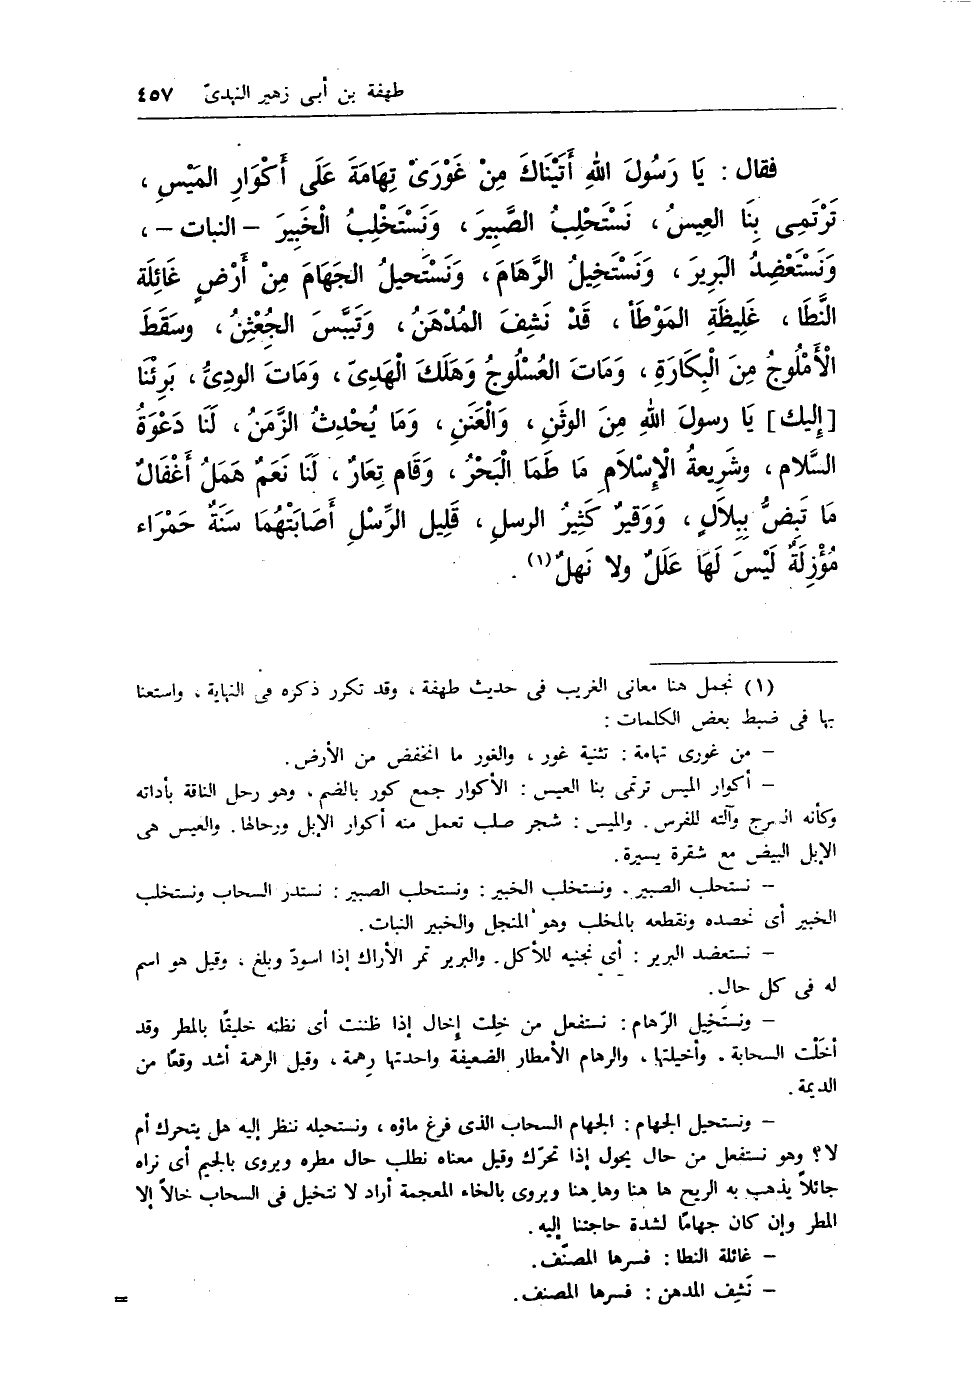 طهفة بن أبى زهير النهدىّ ٤٥٧
فقال : يَا رَسُولَ اللهِ أَتَيْنَاكَ مِنْ غَوْرَىْ تِهَامَةَ عَلَى أَكْوَارِ المَيْسِ ،
تَرْتَمِى بِنَا العِيسُ ، نَسْتَحْلِبُ الصَّبِيرَ ، وَنَسْتَخْلِبُ الْخَبِيرَ – النبات – ،
وَنَسْتَعْضِدُ البَرِيرَ ، وَنَسْتَخِيلُ الرَّهَامَ ، وَنَسْتَحيلُ الجَهَامَ مِنْ أَرْضٍ غَائِلَة
النَّطَا ، غَلِيظَةِ المَوْطَأ ، قَدْ نَشِفَ المُدْهَنُ ، وَتَيبَّسَ الجُعْثِنُ ، وسَقَطَ
الْأُمْلُوجُ مِنَ الْبِكَارَةِ ، وَمَاتَ العُسْلُوجُ وَهَلَكَ الْهَدِىّ ، وَمَاتَ الودِىُّ ، بَرِئْنَا
[إليك] يَا رسولَ اللهِ مِنَ الوثَنِ ، وَالْعَنَنِ ، وَمَا يُحْدِثُ الزَّمَنُ ، لَنَا دَعْوَةُ
السَّلام ، وشَرِيعةُ الْإِسْلاَمِ مَا طَمَا الْبَحْرُ ، وَقَام تِعَارٌ ، لَنَا نَعَمٌ هَمَلٌ أَغْفَالٌ
مَا تَبِضُّ بِبِلاَلٍ ، وَوَقيرٌ كَثِيرُ الرسلِ ، قَلِيل الرِّسْلِ أَصَابَتْهُمَا سَنَةٌ حَمْرَاء
مُؤْزِلَةٌ لَيْسَ لَهَا عَلَلٌ ولا نَهلٌ(١) .
(١) نجمل هنا معانى الغريب فى حديث طهفة ، وقد تكرر ذكره فى النهاية ، واستعنا
بها فى ضبط بعض الكلمات :
– من غورى تهامة : تثنية غور ، والغور ما انخفض من الأرض .
– أكوار الميس ترتمى بنا العيس : الأكوار جمع كور بالضم ، وهو رحل الناقة بأداته
وكأنه السرج وآلته للفرس . والميس : شجر صلب تعمل منه أكوار الإبل ورحالها . والعيس هى
الإبل البيض مع شقرة يسيرة .
– نستحلب الصبير . ونستخلب الخبير : ونستحلب الصبير : نستدر السحاب ونستخلب
الخبير أى نحصده ونقطعه بالمخلب وهو المنجل والخبير النبات .
– نستعضد البرير : أى نجنيه للأكل . والبرير ثمر الأراك إذا اسودّ وبلغ ، وقيل هو اسم
له فى كل حال .
– ونستَخِيل الرّهام : نستفعل من خِلت إخال إذا ظننت أى نظنه خليقًا بالمطر وقد
أخَلْت السحابة . وأخيلتها ، والرهام الأمطار الضعيفة واحدتها رِهمة ، وقيل الرهمة أشد وقعًا من
الديمة .
– ونستحيل الجهام : الجهام السحاب الذى فرغ ماؤه ، ونستحيله ننظر إليه هل يتحرك أم
لا؟ وهو نستفعل من حال يحول إذا تحرّك وقيل معناه نطلب حال مطره ويروى بالجيم أى نراه
جائلاً يذهب به الريح ها هنا وها هنا ويروى بالخاء المعجمة أراد لا نتخيل فى السحاب خالاً إلا
المطر وإن كان جهامًا لشدة حاجتنا إليه .
– غائلة النطا : فسرها المصنّف .
– نَشِف المدهن : فسرها المصنف .
=